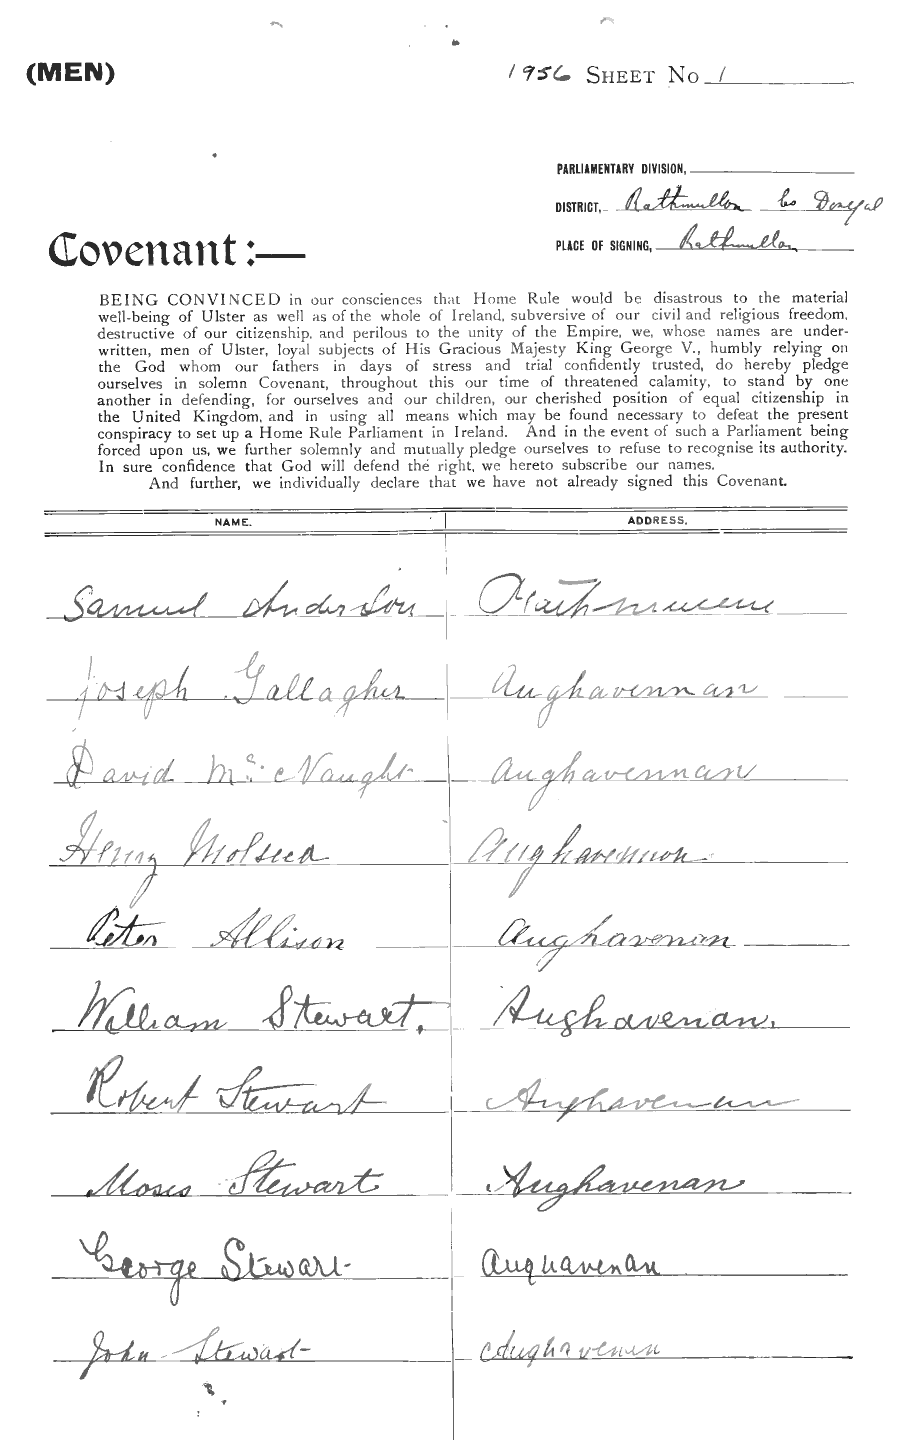 (MEN)
1956 SHEET No 1
PARLIAMENTARY DIVISION,
DISTRICT, Rathmullon Co Donegal
PLACE OF SIGNING, Rathmullon
Covenant:—
BEING CONVINCED in our consciences that Home Rule would be disastrous to the material
well-being of Ulster as well as of the whole of Ireland, subversive of our civil and religious freedom,
destructive of our citizenship, and perilous to the unity of the Empire, we, whose names are under-
written, men of Ulster, loyal subjects of His Gracious Majesty King George V., humbly relying on
the God whom our fathers in days of stress and trial confidently trusted, do hereby pledge
ourselves in solemn Covenant, throughout this our time of threatened calamity, to stand by one
another in defending, for ourselves and our children, our cherished position of equal citizenship in
the United Kingdom, and in using all means which may be found necessary to defeat the present
conspiracy to set up a Home Rule Parliament in Ireland. And in the event of such a Parliament being
forced upon us, we further solemnly and mutually pledge ourselves to refuse to recognise its authority.
In sure confidence that God will defend the right, we hereto subscribe our names.
And further, we individually declare that we have not already signed this Covenant.
NAME. ADDRESS.
Samuel Anderson
Joseph Gallagher Aughavennan
David Mc cNaught Aughavennan
Henry Aughavennon
Peter Allison Aughavenan
William Stewart. Aughavenan.
Robert Stewart Aughavenan
Moses Stewart Aughavenan
George Stewart Aughavenan
John Stewart Aughavenan